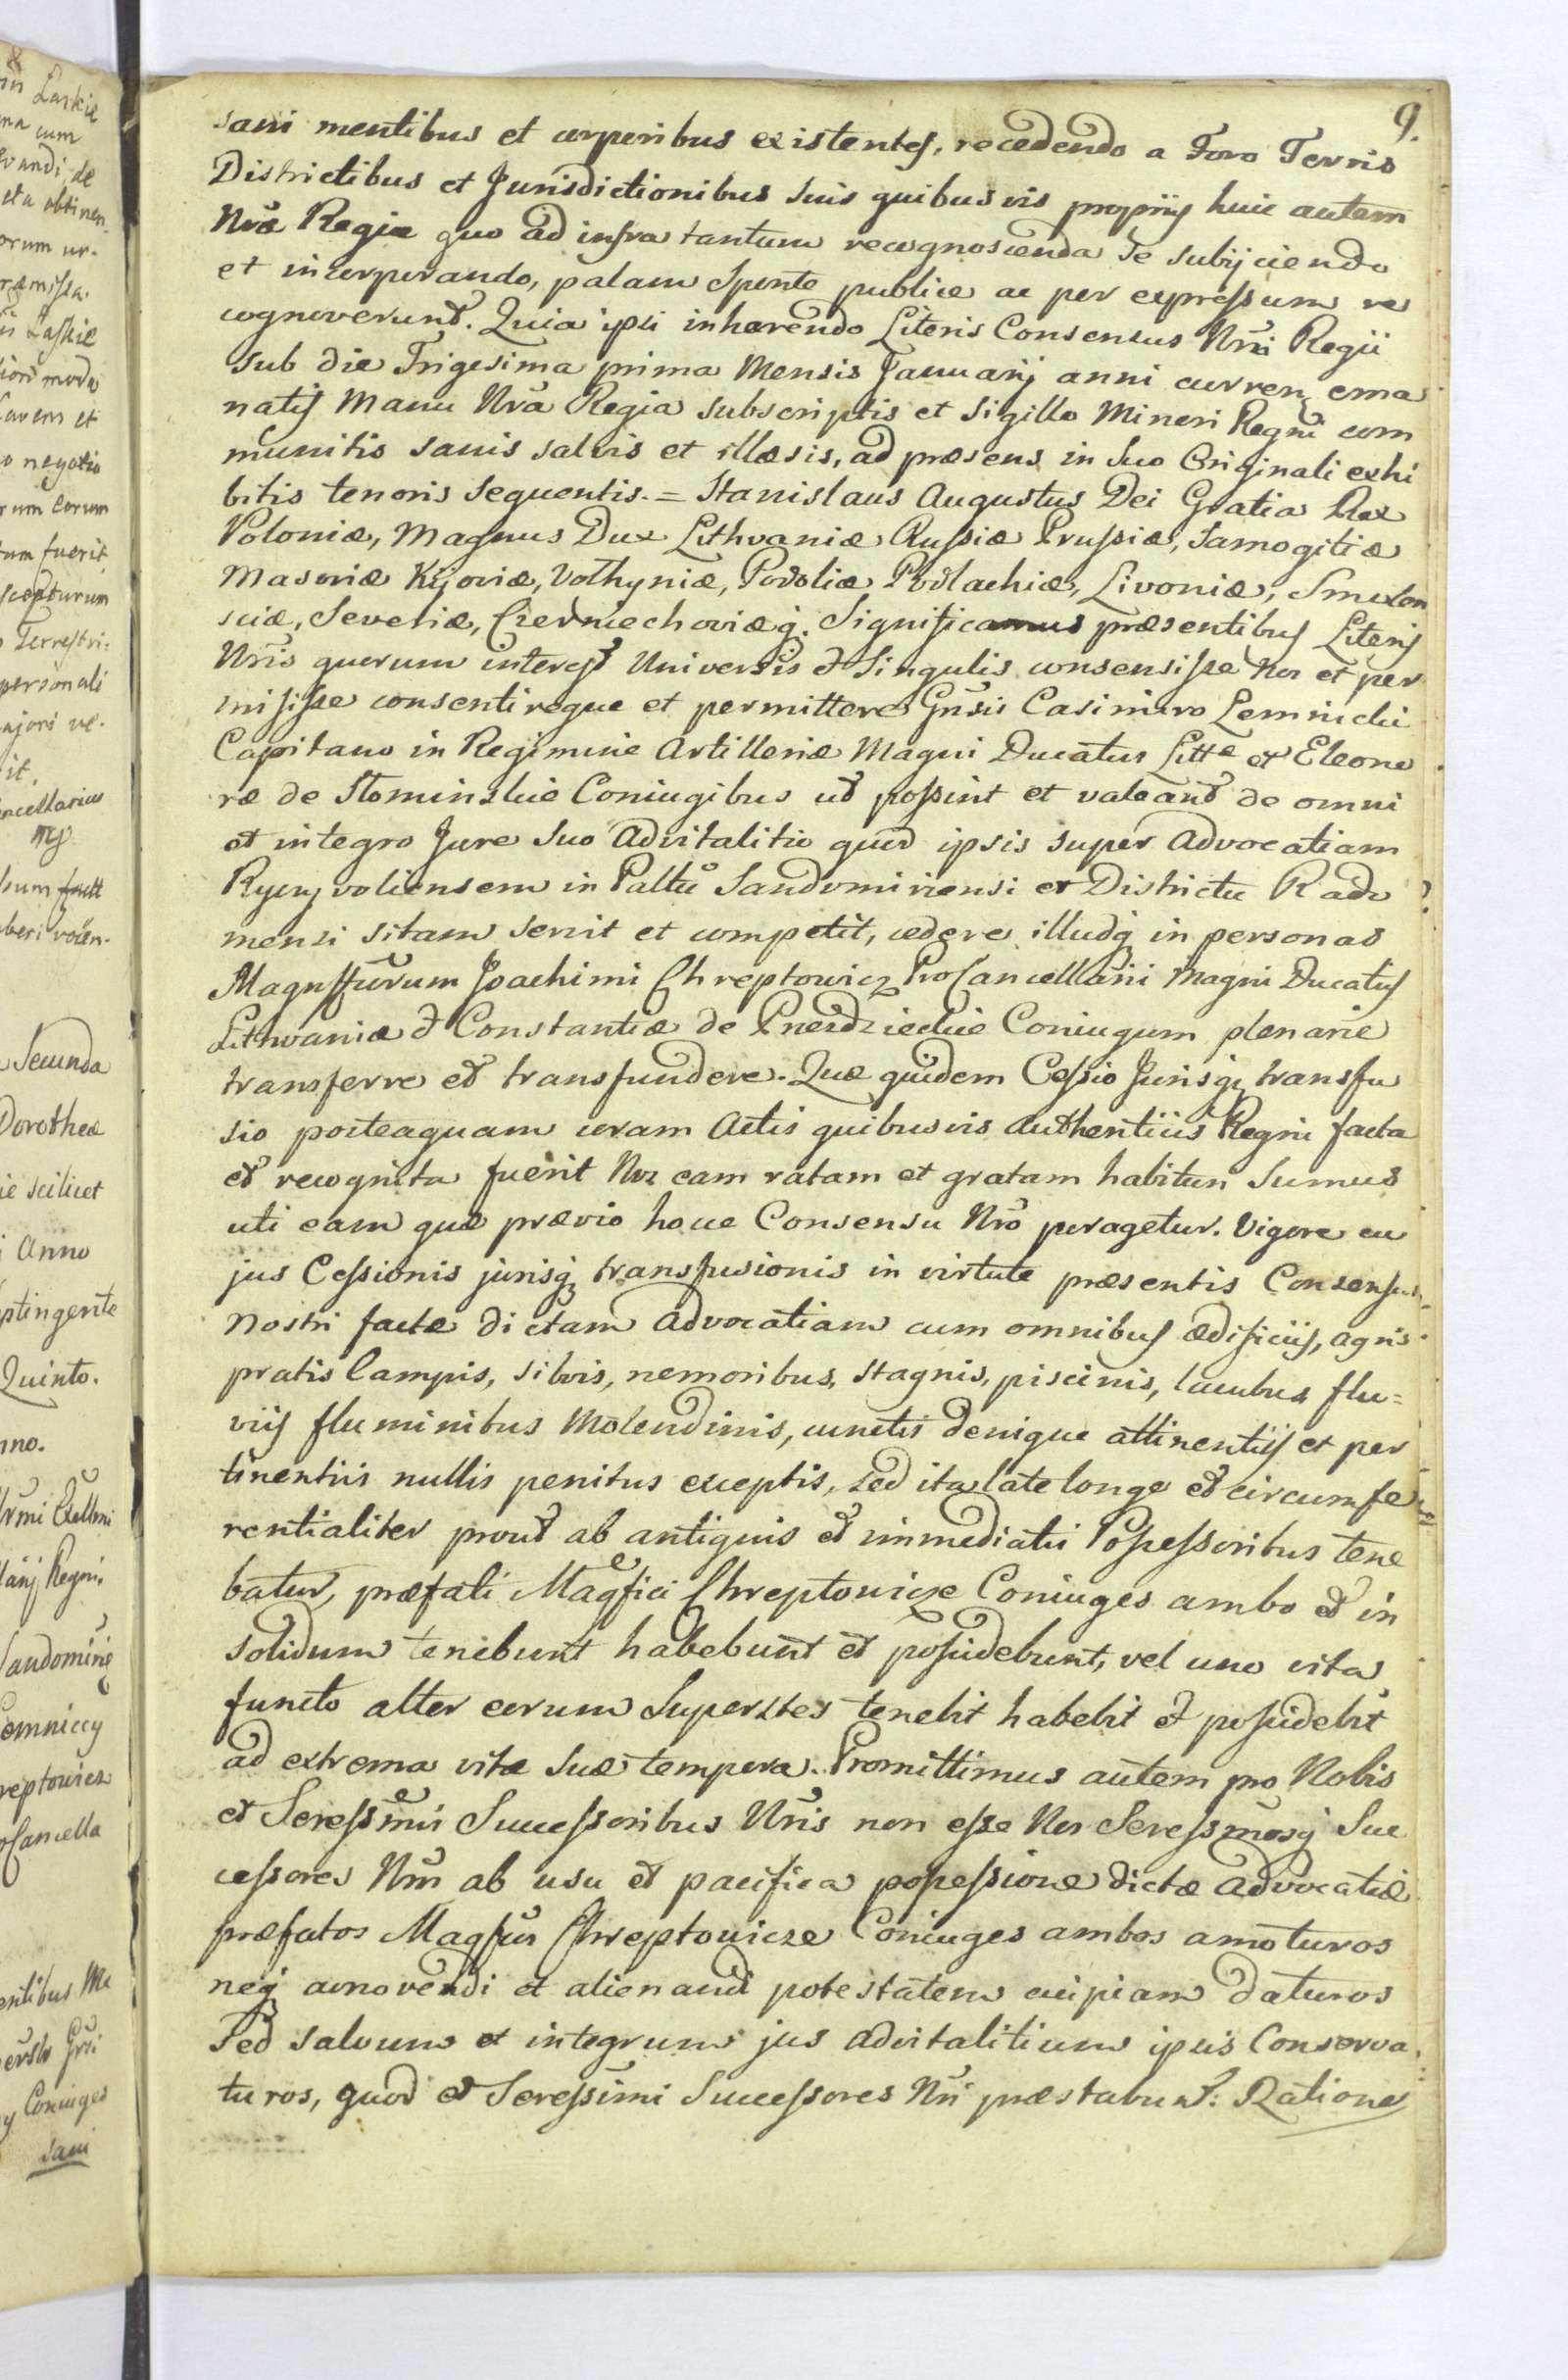 9.
sani mentibus et corporibus existentes, recedendo a Foro Terris
Districtibus et Jurisdictionibus suis quibusvis proprijs huic autem
Nrae Regiae quo ad infra tantum recognoscenda se subijciendo
et incorporando, palam sponte publice ac per expressum re
cognoverunt. Quia ipsi inhaerendo Literis Consensus Nri Regii
sub die Trigesima prima Mensis Januarij anni curren. ema
natis Manu Nra Regia subscriptis et sigillo Minori Regni com
munitis sanis salvis et illaesis, ad praesens in suo Originali exhi
bitis tenoris sequentis. = Stanislaus Augustus Dei Gratia Rex
Poloniae, Magnus Dux Lithvaniae Russiae Prussiae, Samogitiae
Masoviae Kijoviae, Volhyniae, Podoliae Podlachiae, Livoniae, Smolen
sciae, Severiae, Czerniechoviaeq. Significamus praesentibus Literis
Nris quorum interest Universis et Singulis consensisse Nos et per
misisse consentireque et permittere Gnsis Casimiro Lemnicki
Capitano in Regimine Artilleriae Magni Ducatus Litt.ae et Eleono
rae de Slominskie Coniugibus ut possint et valeant de omni
et integro Jure suo Advitalitio quod ipsis super Advocatiam
Ryczyvoliensem in Pallttu Sandomiriensi et Districtu Rado
mensi sitam servit et competit, cedere illudq in personas
Magnfforum Joachimi Chreptowicz ProCancellarii Magni Ducatus
Lithvaniae et Constantiae de Przezdzieckie Coniugum plenarie
transferre et transfundere. Quae quidem Cessio Jurisq transfu
sio posteaquam coram Actis quibusvis Authenticis Regni facta
et recognita fuerit Nos eam ratam et gratam habituri Sumus
uti eam quae praevio hocce Consensu Nro peragetur. Vigore cu
jus Cessionis jurisq transfusionis in virtute praesentis Consensus
Nostri factae dictam Advocatiam cum omnibus aedificiis, agris
pratis Campis, silvis, nemoribus, stagnis, piscinis, lacubus flu=
viis fluminibus Molendinis, cunctis denique attinentiis et per
tinentiis nullis penitus exceptis, sed ita late longe et circumfe
rentialiter prout ab antiquis et immediatis Possessoribus tene
batur, praefati Magfici Chreptowicze Coniuges ambo et in
solidum tenebunt habebunt et possidebunt, vel uno vita
functo alter eorum Superstes tenebit habebit et possidebit
ad extrema vitae suae tempora. Promittimus autem pro Nobis
et Seressmis Successoribus Nris non esse Nos Seressmosq Suc
cessores Nros ab usu et pacifica possessione dictae Advocatiae
praefatos Magfcos Chreptowicze Coniuges ambos amoturos
neq amovendi et alienandi potestatem cuipiam daturos
sed salvum et integrum jus advitalitium ipsis Conserva
turos, quod et Seressimi Successores Nri praestabunt: Ratione